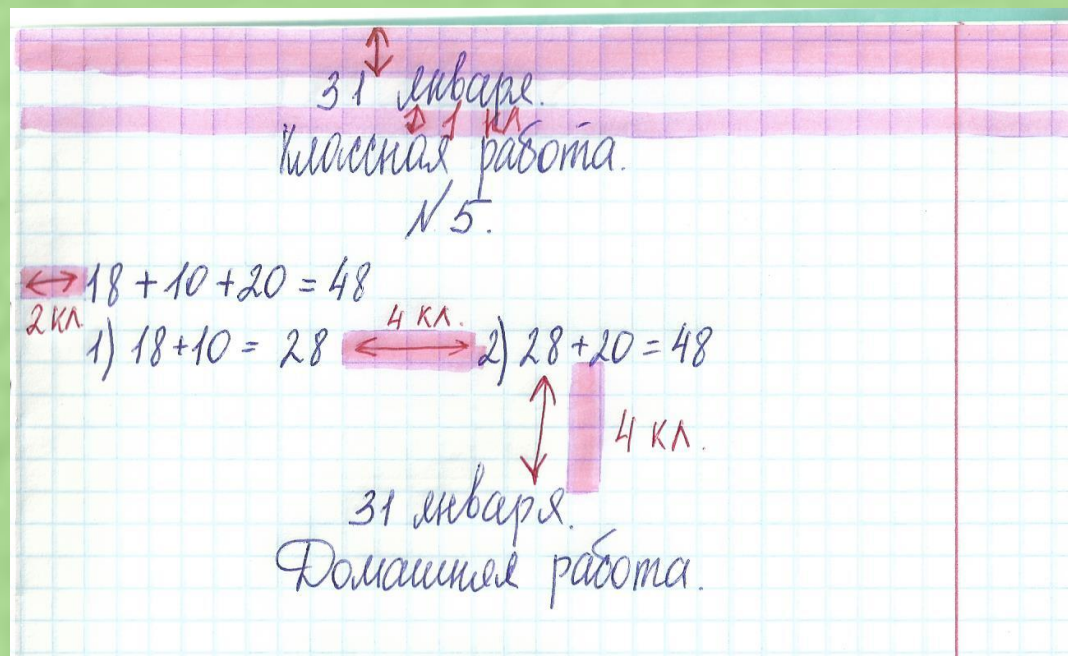 31 января.
1 кл
Классная работа.
№ 5.
18 + 10 + 20 = 48
2 кл. 4 кл.
1) 18+10 = 28 2) 28 + 20 = 48
4 кл.
31 января.
Домашняя работа.